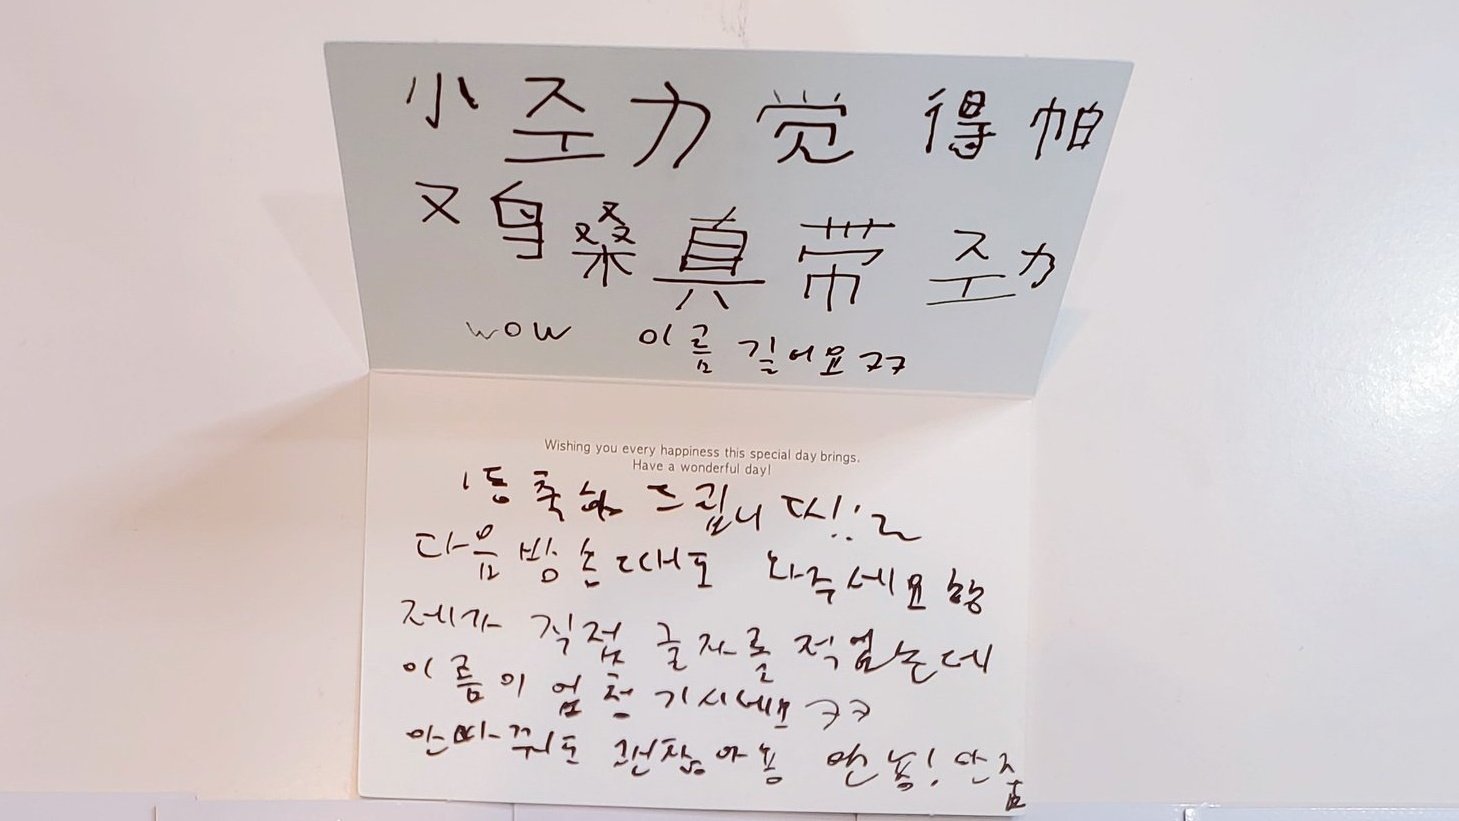 小劲觉得帕
鸡桑真带劲
wow 이름 길어요ㅋㅋ
Wishing you every happiness this special day brings.
Have a wonderful day!
1등 축하 드립니다!!~
다음 방송때도 와주세요
제가 직접 글자를 적었는데
이름이 엄청 기시네요 ㅋㅋ
안바꿔도 괜찮아용